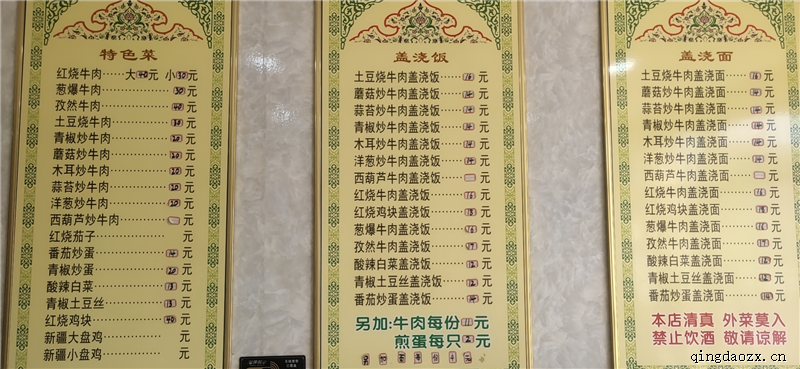 特色菜
红烧牛肉……大40元 小30元
葱爆牛肉……30元
孜然牛肉……40元
土豆烧牛肉……元
青椒炒牛肉……20元
蘑菇炒牛肉……20元
木耳炒牛肉……20元
蒜苔炒牛肉……20元
洋葱炒牛肉……20元
西葫芦炒牛肉……元
红烧茄子……元
番茄炒蛋……元
青椒炒蛋……20元
酸辣白菜……13元
青椒土豆丝……13元
红烧鸡块……40元
新疆大盘鸡……元
新疆小盘鸡……元
盖浇饭
土豆烧牛肉盖浇饭……元
蘑菇炒牛肉盖浇饭……14元
蒜苔炒牛肉盖浇饭……14元
青椒炒牛肉盖浇饭……14元
木耳炒牛肉盖浇饭……14元
洋葱炒牛肉盖浇饭……14元
西葫芦牛肉盖浇饭……元
红烧牛肉盖浇饭……16元
红烧鸡块盖浇饭……元
葱爆牛肉盖浇饭……16元
孜然牛肉盖浇饭……17元
酸辣白菜盖浇饭……12元
青椒土豆丝盖浇饭……12元
番茄炒蛋盖浇饭……14元
另加:牛肉每份11元
煎蛋每只2元
盖浇面
土豆烧牛肉盖浇面……元
蘑菇炒牛肉盖浇面……14元
蒜苔炒牛肉盖浇面……14元
青椒炒牛肉盖浇面……14元
木耳炒牛肉盖浇面……14元
洋葱炒牛肉盖浇面……14元
西葫芦牛肉盖浇面……元
红烧牛肉盖浇面……16元
红烧鸡块盖浇面……元
葱爆牛肉盖浇面……16元
孜然牛肉盖浇面……17元
酸辣白菜盖浇面……12元
青椒土豆丝盖浇面……12元
番茄炒蛋盖浇面……14元
本店清真 外菜莫入
禁止饮酒 敬请谅解
qingdaozx.cn